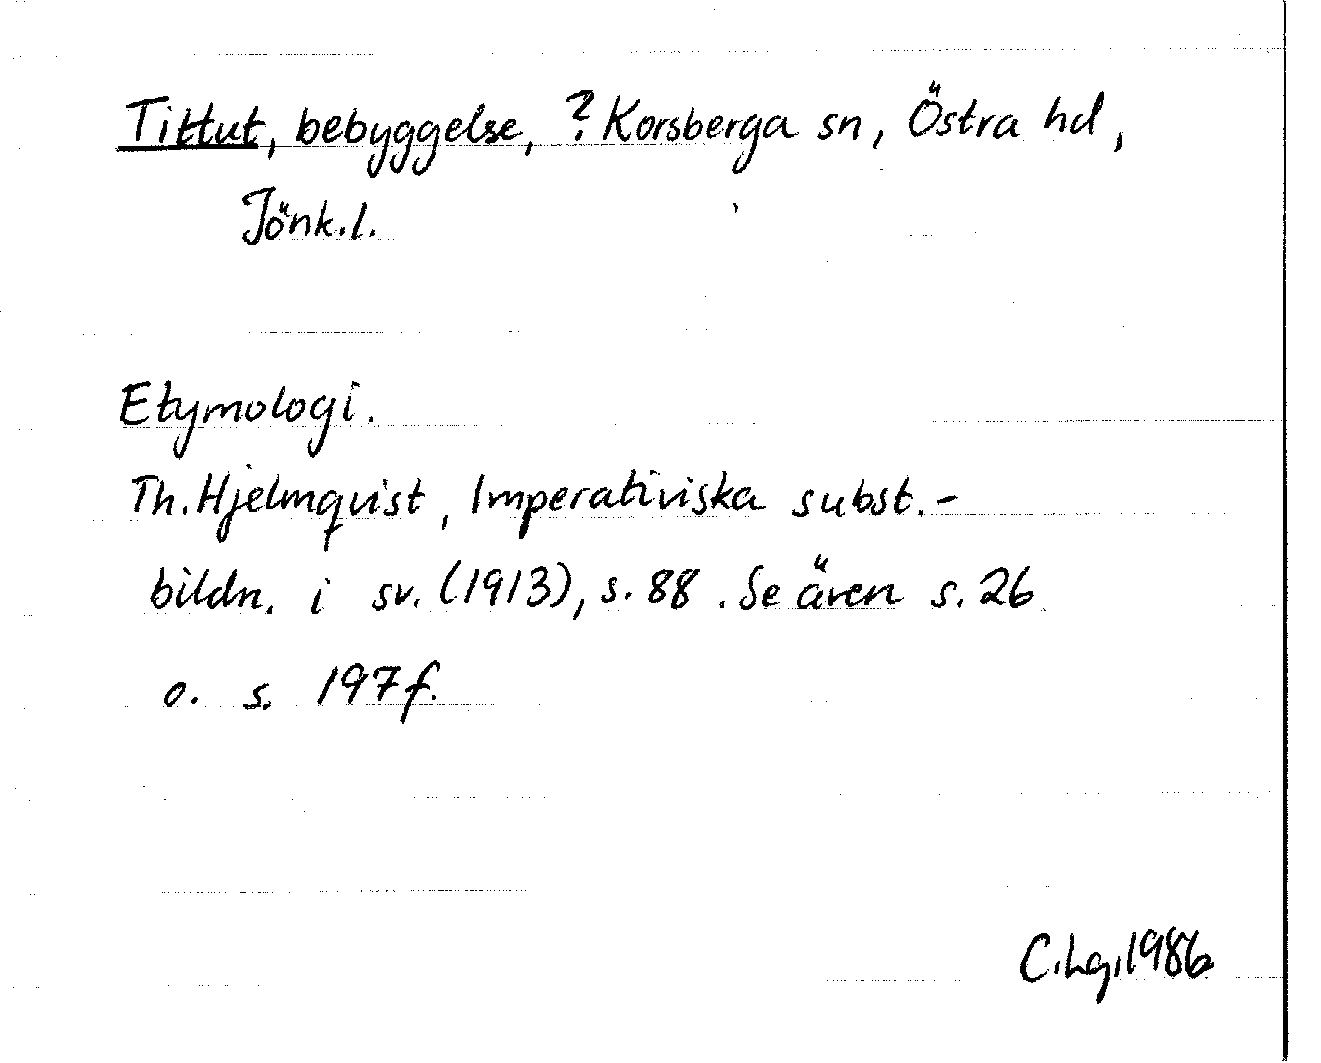 Tittut, bebyggelse, ? Korsberga sn, Östra hd,
Jönk.l.
Etymologi.
Th. Hjelmqvist, Imperativiska subst.-
bildn. i sv. (1913), s. 88. Se även s. 26
o. s. 197f.
C.Lg, 1986